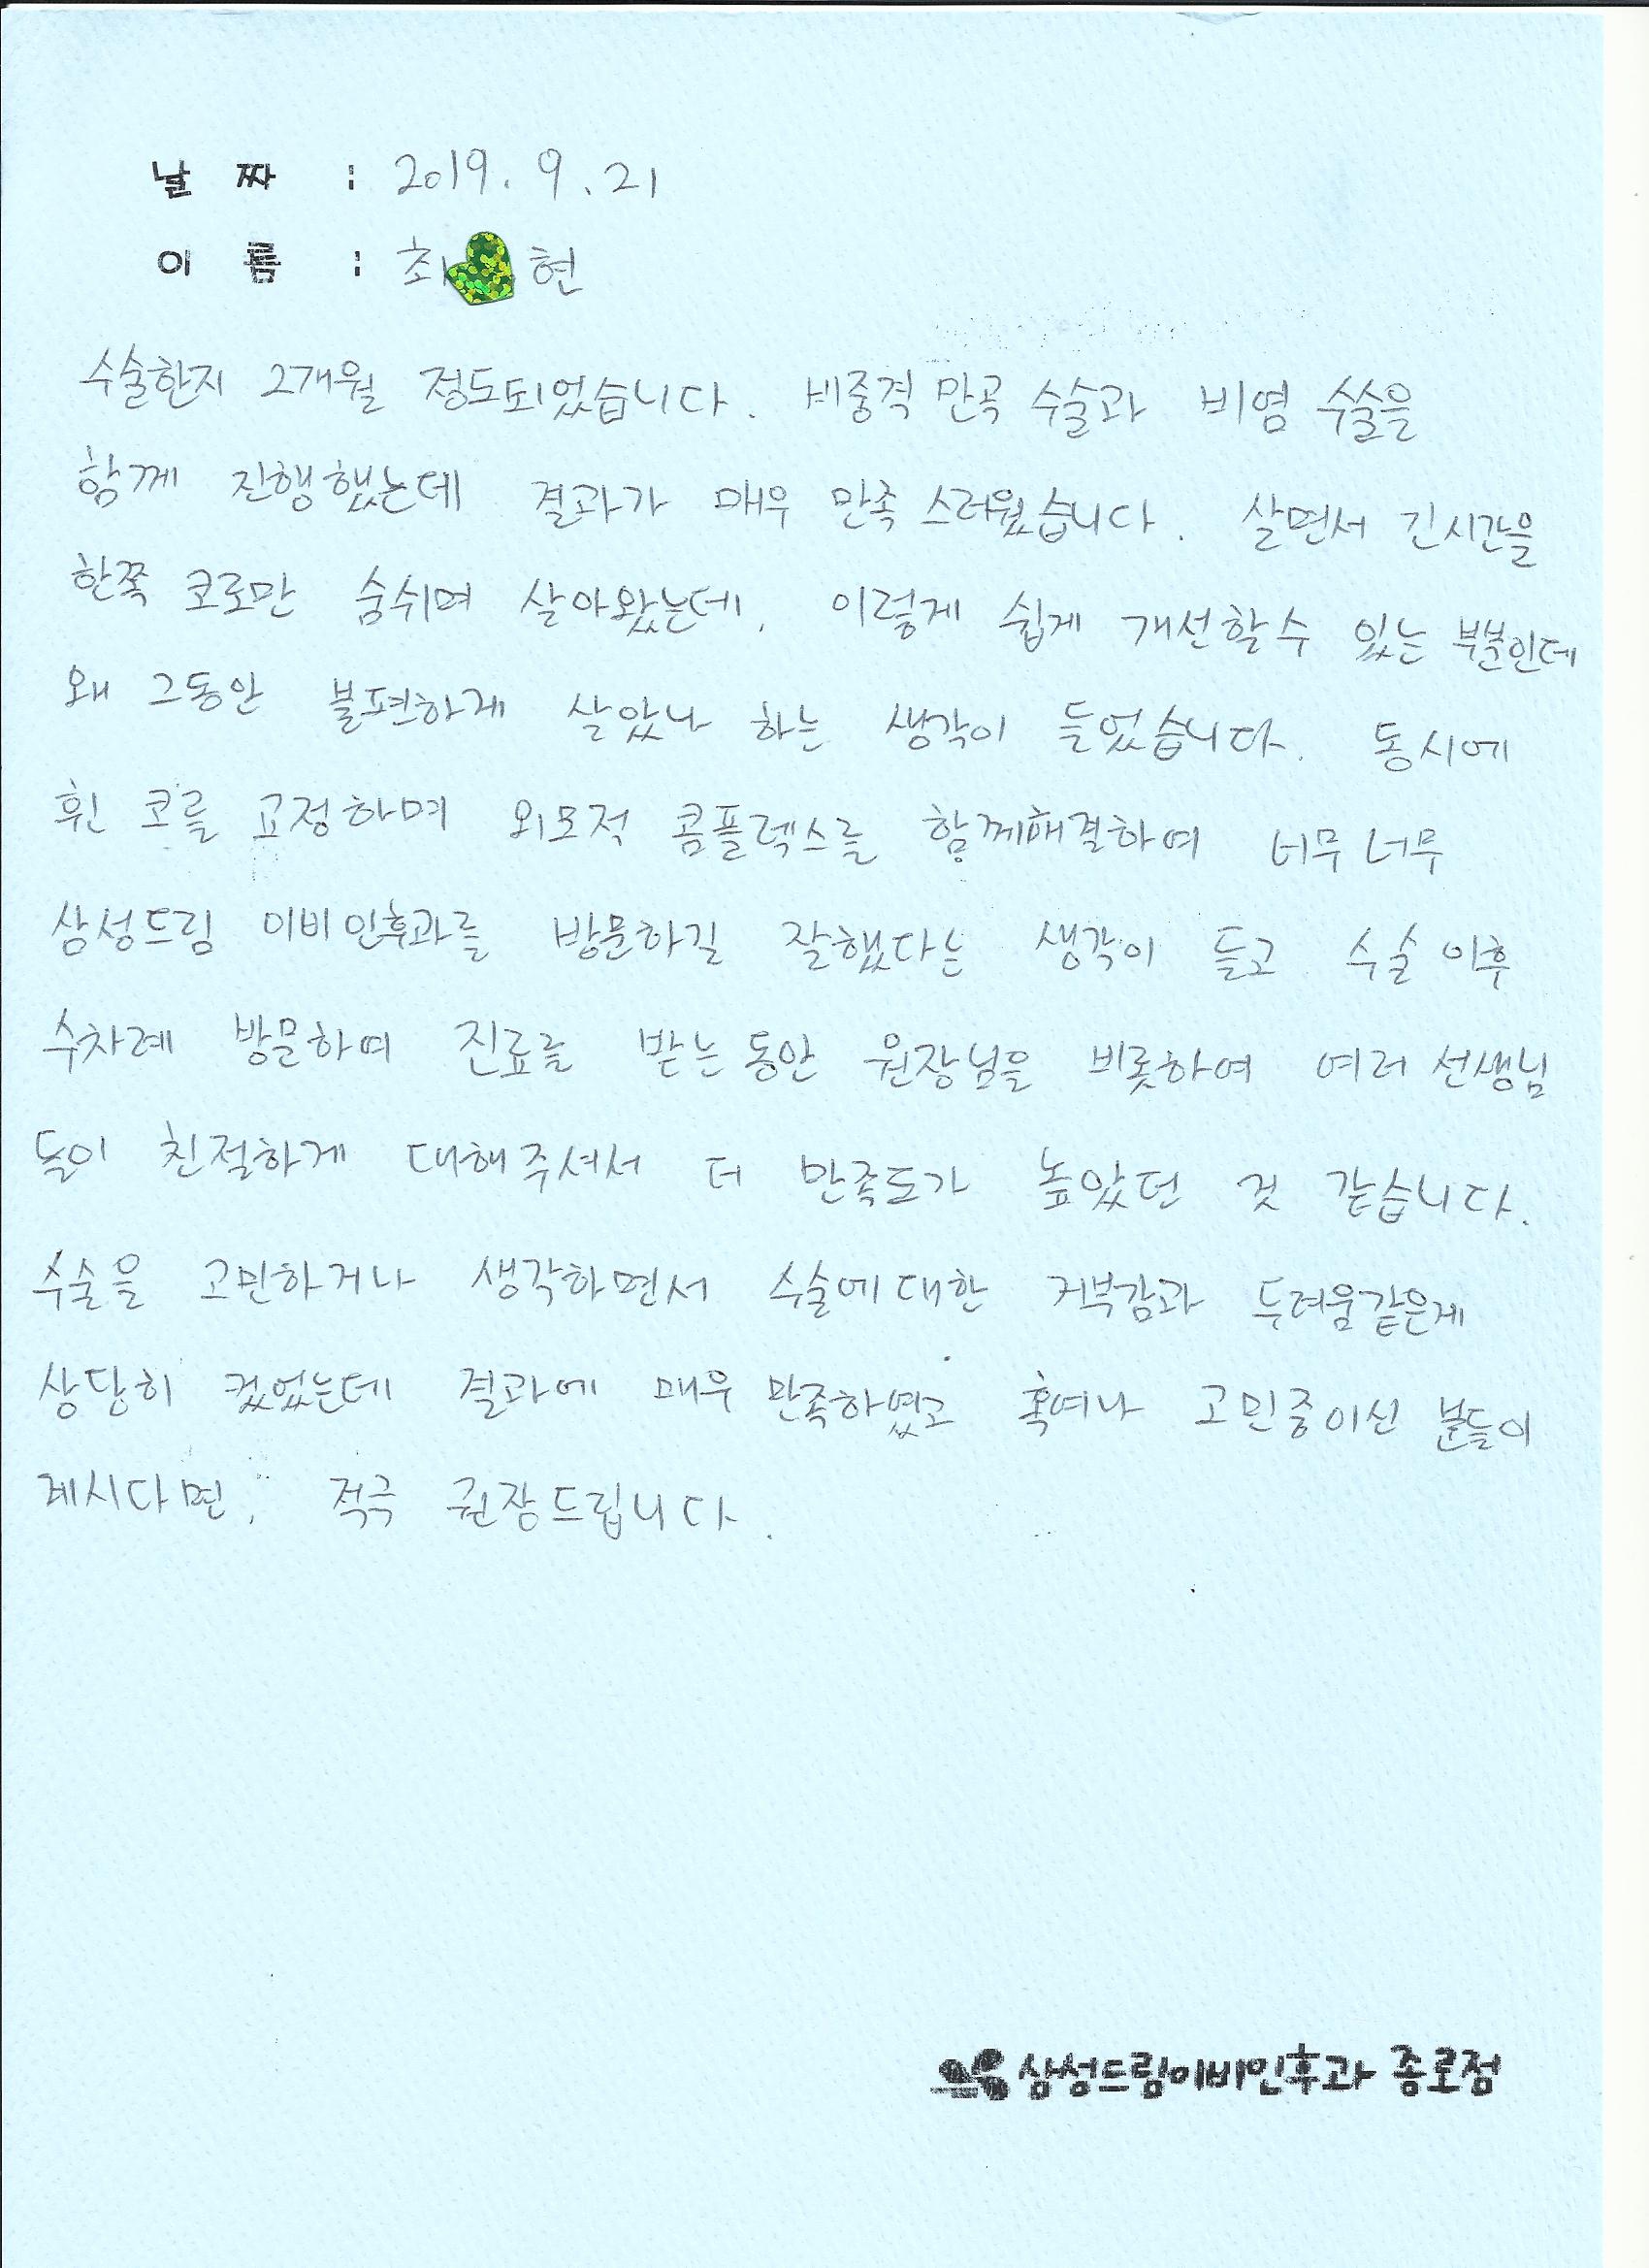 날 짜 : 2019. 9. 21
이 름 : 최 현
수술한지 2개월 정도되었습니다. 비중격 만곡 수술과 비염 수술을
함께 진행했는데 결과가 매우 만족스러웠습니다. 살면서 긴시간을
한쪽 코로만 숨쉬며 살아왔는데, 이렇게 쉽게 개선할수 있는 부분인데
왜 그동안 불편하게 살았나 하는 생각이 들었습니다. 동시에
휜 코를 교정하며 외모적 콤플렉스를 함께해결하여 너무너무
삼성드림 이비인후과를 방문하길 잘했다는 생각이 들고 수술 이후
수차례 방문하며 진료를 받는동안 원장님을 비롯하여 여러 선생님
들이 친절하게 대해주셔서 더 만족도가 높았던 것 같습니다.
수술을 고민하거나 생각하면서 수술에대한 거부감과 두려움같은게
상당히 컸었는데 결과에 매우 만족하였고 혹여나 고민중이신 분들이
계시다면, 적극 권장드립니다.
삼성드림이비인후과 종로점